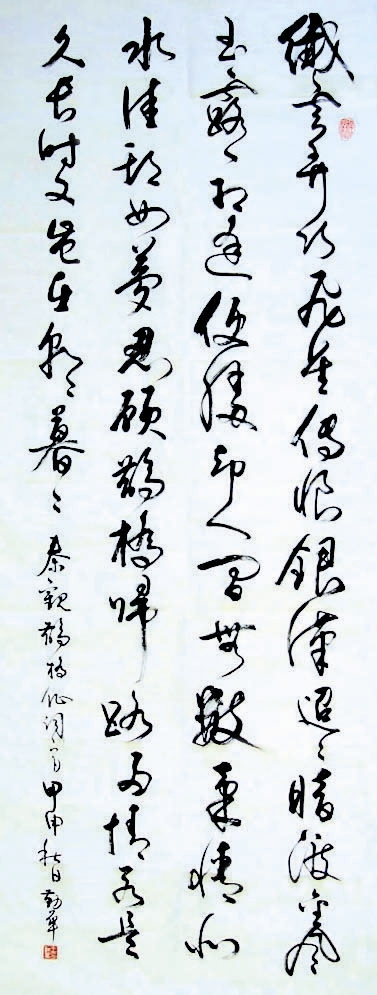 纖雲弄巧飛星傳恨銀漢迢〻暗渡金風
玉露一相逢便勝卻人間無數柔情似
水佳期如夢忍顧鵲橋歸路兩情若是
久長時又豈在朝〻暮〻秦觀鵲橋仙詞一首甲申秋日